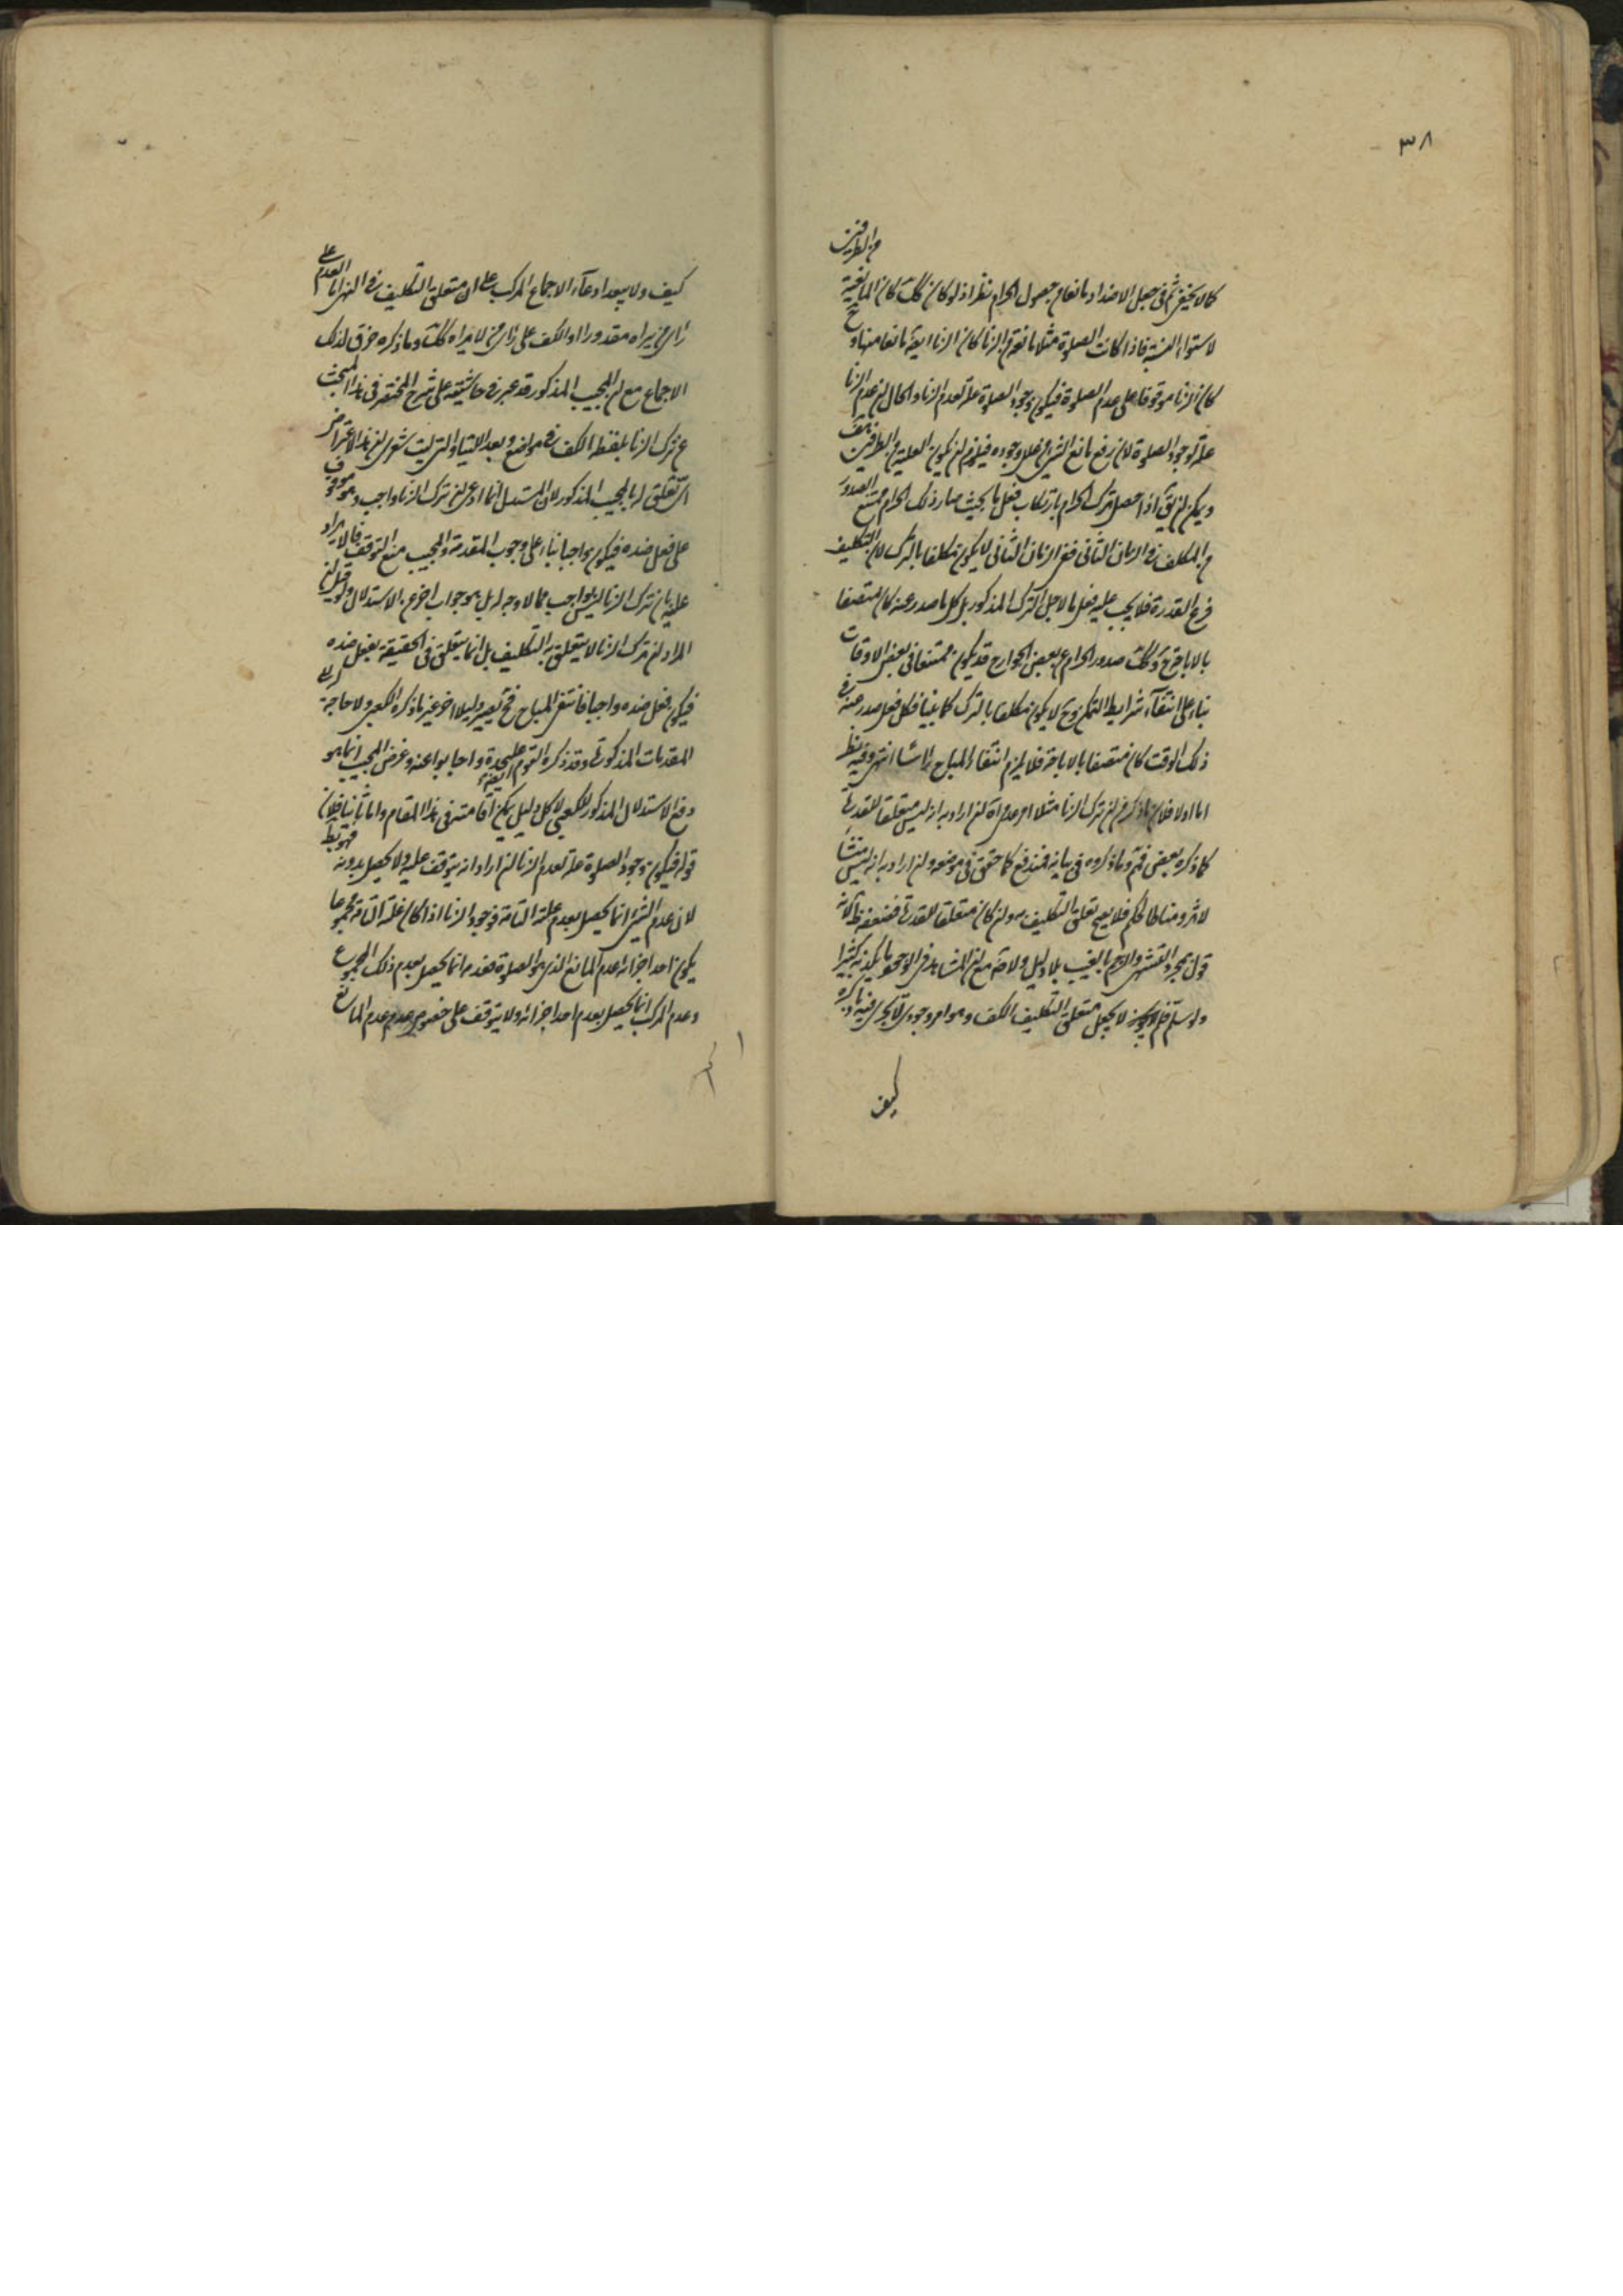 ٣٨
من الطرفين
كما لا يخفى ثم في جعل الاضداد مانعا من حصول الحرام نظر اذ لو كان كك كان المانعية
لاستواء النسبة فاذا كانت الصلوة مثلا مانعة من الزنا كان الزنا ايضا مانعا منها وح
كان الزنا موقوفا على عدم الصلوة فيكون وجود الصلوة علة لعدم الزنا والحال ان عدم الزنا
علة لوجود الصلوة لان رفع مانع الشئ من علل وجوده فيلزم ان يكون العلية من الطرفين
ويمكن ان يق اذا حصل ترك الحرام بارتكاب فعل ما بحيث صار ذلك الحرام ممتنع الصدور
من المكلف في الزمان الثاني ففي الزمان الثاني لا يكون مكلفا بالترك لان التكليف
فرع القدرة فلا يجب عليه فعل ما لاجل الترك المذكور بل كل ما صدر عنه كان متصفا
بالاباحة وكك صدور الحرام عن بعض الجوارح قد يكون ممتنعا في بعض الاوقات
بناء على انتفاء شرايط التمكن وح لا يكون مكلفا بالترك كما بينا فكل فعل صدر عنه في
ذلك الوقت كان متصفا بالاباحة فلا يلزم انتفاء المباح راسا انتهى وفيه نظر
اما اولا فلان ما ذكر من ان ترك الزنا مثلا امر عدمي ان اراد به انه ليس متعلقا للقدرة
كما ذكره بعض فثم وما ذكروه في بيانه فمندفع كما حقق في موضعه وان اراد به انه ليس منشأ
لاثر ومناطا لحكم فلا يصح تعلق التكليف به وان كان متعلقا للقدرة فضعفه ظ لانه
قول بمجرد التشهي والرجم بالغيب بلا دليل
ولو سلم فلم لا يجعل متعلق التكليف الكف وهو امر وجودي لا يجري فيه ما ذكره
كيف
كيف ولا يبعد ادعاء الاجماع المركب على ان متعلق التكليف في النهي اما العدم على
راى من يراه مقدورا او الكف على راى من لا يراه كك وما ذكره خرق لذلك
الاجماع مع ان المجيب المذكور قد عبر في حاشيته على شرح المختصر في هذا المبحث
عن ترك الزنا بلفظ الكف في مواضع وبعد اللتيا والتي ليت شعري ان هذا الاعتراض
اى تعلق له بالمجيب المذكور لان المستدل انما ادعى ان ترك الزنا واجب وهو موقوف
على فعل ضده فيكون واجبا بناء على وجوب المقدمة والمجيب منع التوقف فالايراد
عليه بان ترك الزنا ليس بواجب مما لا وجه له بل هو جواب اخر عن الاستدلال ولو قيل ان
المراد ان ترك الزنا لا يتعلق به التكليف بل انما يتعلق في الحقيقة بفعل ضده
فيكون فعل ضده واجبا فانتفى المباح فح يصير دليلا اخر غير ما ذكره الكعبي ولا حاجة الى
المقدمات المذكورة وقد ذكره القوم عليحدة واجابوا عنه وغرض المجيب انما هو
دفع الاستدلال المذكور للكعبي لا كل دليل يمكن اقامته في هذا المقام واما ثانيا فلان
قوله فيكون وجود الصلوة علة لعدم الزنا ان اراد انه يتوقف عليه ولا يحصل بدونه فهو بط
لان عدم الشئ انما يحصل بعدم علته التامة فوجود الزنا اذا كان علته التامة مجموعا
يكون احد اجزائه عدم المانع الذي هو الصلوة فعدمه انما يحصل بعدم ذلك المجموع
وعدم المركب انما يحصل بعدم احد اجزائه ولا يتوقف على خصوص عدم عدم المانع